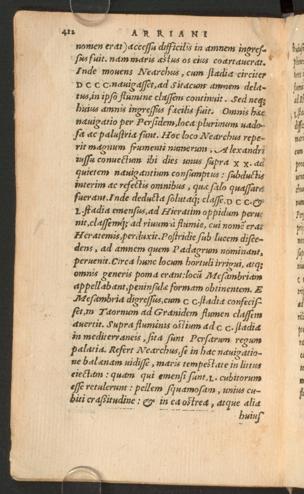 412 ARRIANI
nomen erat) accessu difficilis in amnem ingres-
sus fuit. nam maris æstus os eius coartauerat.
Inde mouens Nearchus, cum stadia circiter
DCCC. nauigasset, ad Sitacum amnem dela-
tus, in ipso flumine classem continuit. Sed neq;
huius amnis ingressus facilis fuit. Omnis hæc
nauigatio per Persidem, loca plurimum uado-
sa ac palustria sunt. Hoc loco Nearchus repe-
rit magnum frumenti numerum, Alexandri
iussu conuectum ibi dies unus supra XX. ad
quietem nauigantium consumptus: subductis
interim ac refectis omnibus, quæ salo quassatæ
fuerant. Inde deducta solutaq; classe, DCC. &
L. stadia emensus, ad Hieratim oppidum perue
nit, classemq; ad riuum è flumine, cui nomē erat
Heratemis, perduxit. Postridie sub lucem disce-
dens, ad amnem quem Padagrum nominant,
peruenit. Circa hunc locum hortuli irrigui, atq;
omnis generis poma erant: locū Mesambriam
appellabant, peninsulæ formam obtinentem. E
Mesambria digressus, cum CC. stadia confecis-
set, in Taornum ad Granidem flumen classem
auertit. Supra fluminis ostium ad CC. stadia
in mediterraneis, sita sunt Persarum regum
palatia. Refert Nearchus, se in hac nauigatio-
ne balænam uidisse, maris tempestate in littus
eiectam: quam qui emensi sunt, L. cubitorum
esse retulerunt: pellem squamosam, unius cu-
biti crassitudine: & in ea ostrea, atque alia
huius